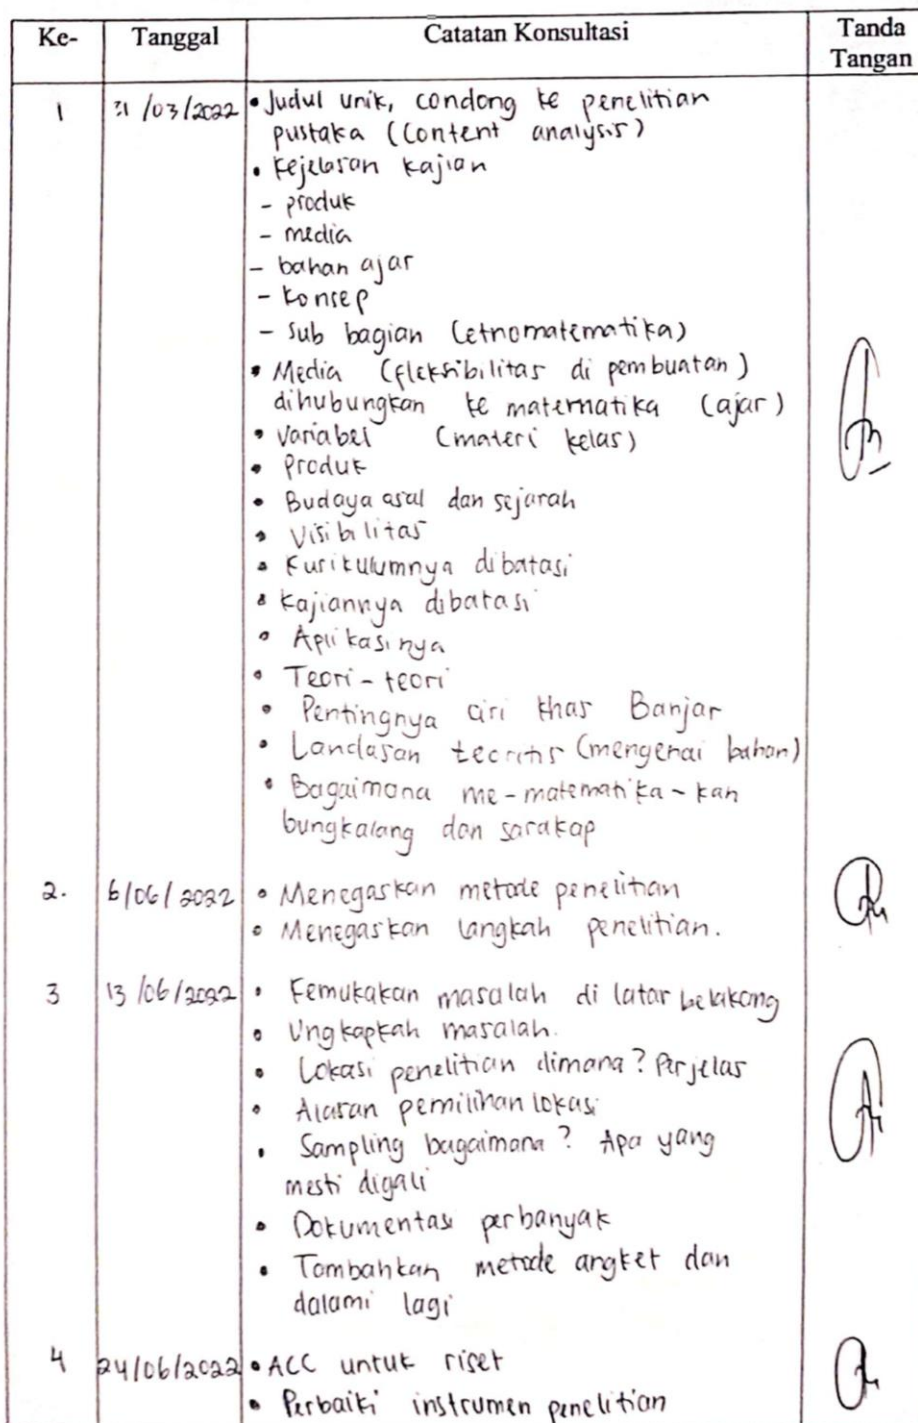 Ke- Tanggal Catatan Konsultasi Tanda Tangan
1 31/03/2022 • Judul unik, condong ke penelitian
pustaka (Content analysis)
• Kejelasan kajian
- produk
- media
- bahan ajar
- Konsep
- Sub bagian (etnomatematika)
• Media (fleksibilitas di pembuatan)
dihubungkan ke matematika (ajar)
• Variabel (materi kelas)
• Produk
• Budaya asal dan sejarah
• Visibilitas
• Kurikulumnya dibatasi
• Kajiannya dibatasi
• Aplikasinya
• Teori - teori
• Pentingnya ciri khas Banjar
• Landasan teoritis (mengenai bahan)
• Bagaimana me-matematika-kan
bungkalang dan sarakap
2. 6/06/2022 • Menegaskan metode penelitian
• Menegaskan langkah penelitian.
3 13/06/2022 • Kemukakan masalah di latar belakang
• Ungkapkah masalah.
• Lokasi penelitian dimana? Perjelas
• Alasan pemilihan lokasi
• Sampling bagaimana? Apa yang
mesti digali
• Dokumentasi perbanyak
• Tambahkan metode angket dan
dalami lagi
4 24/06/2022 • ACC untuk riset
• Perbaiki instrumen penelitian